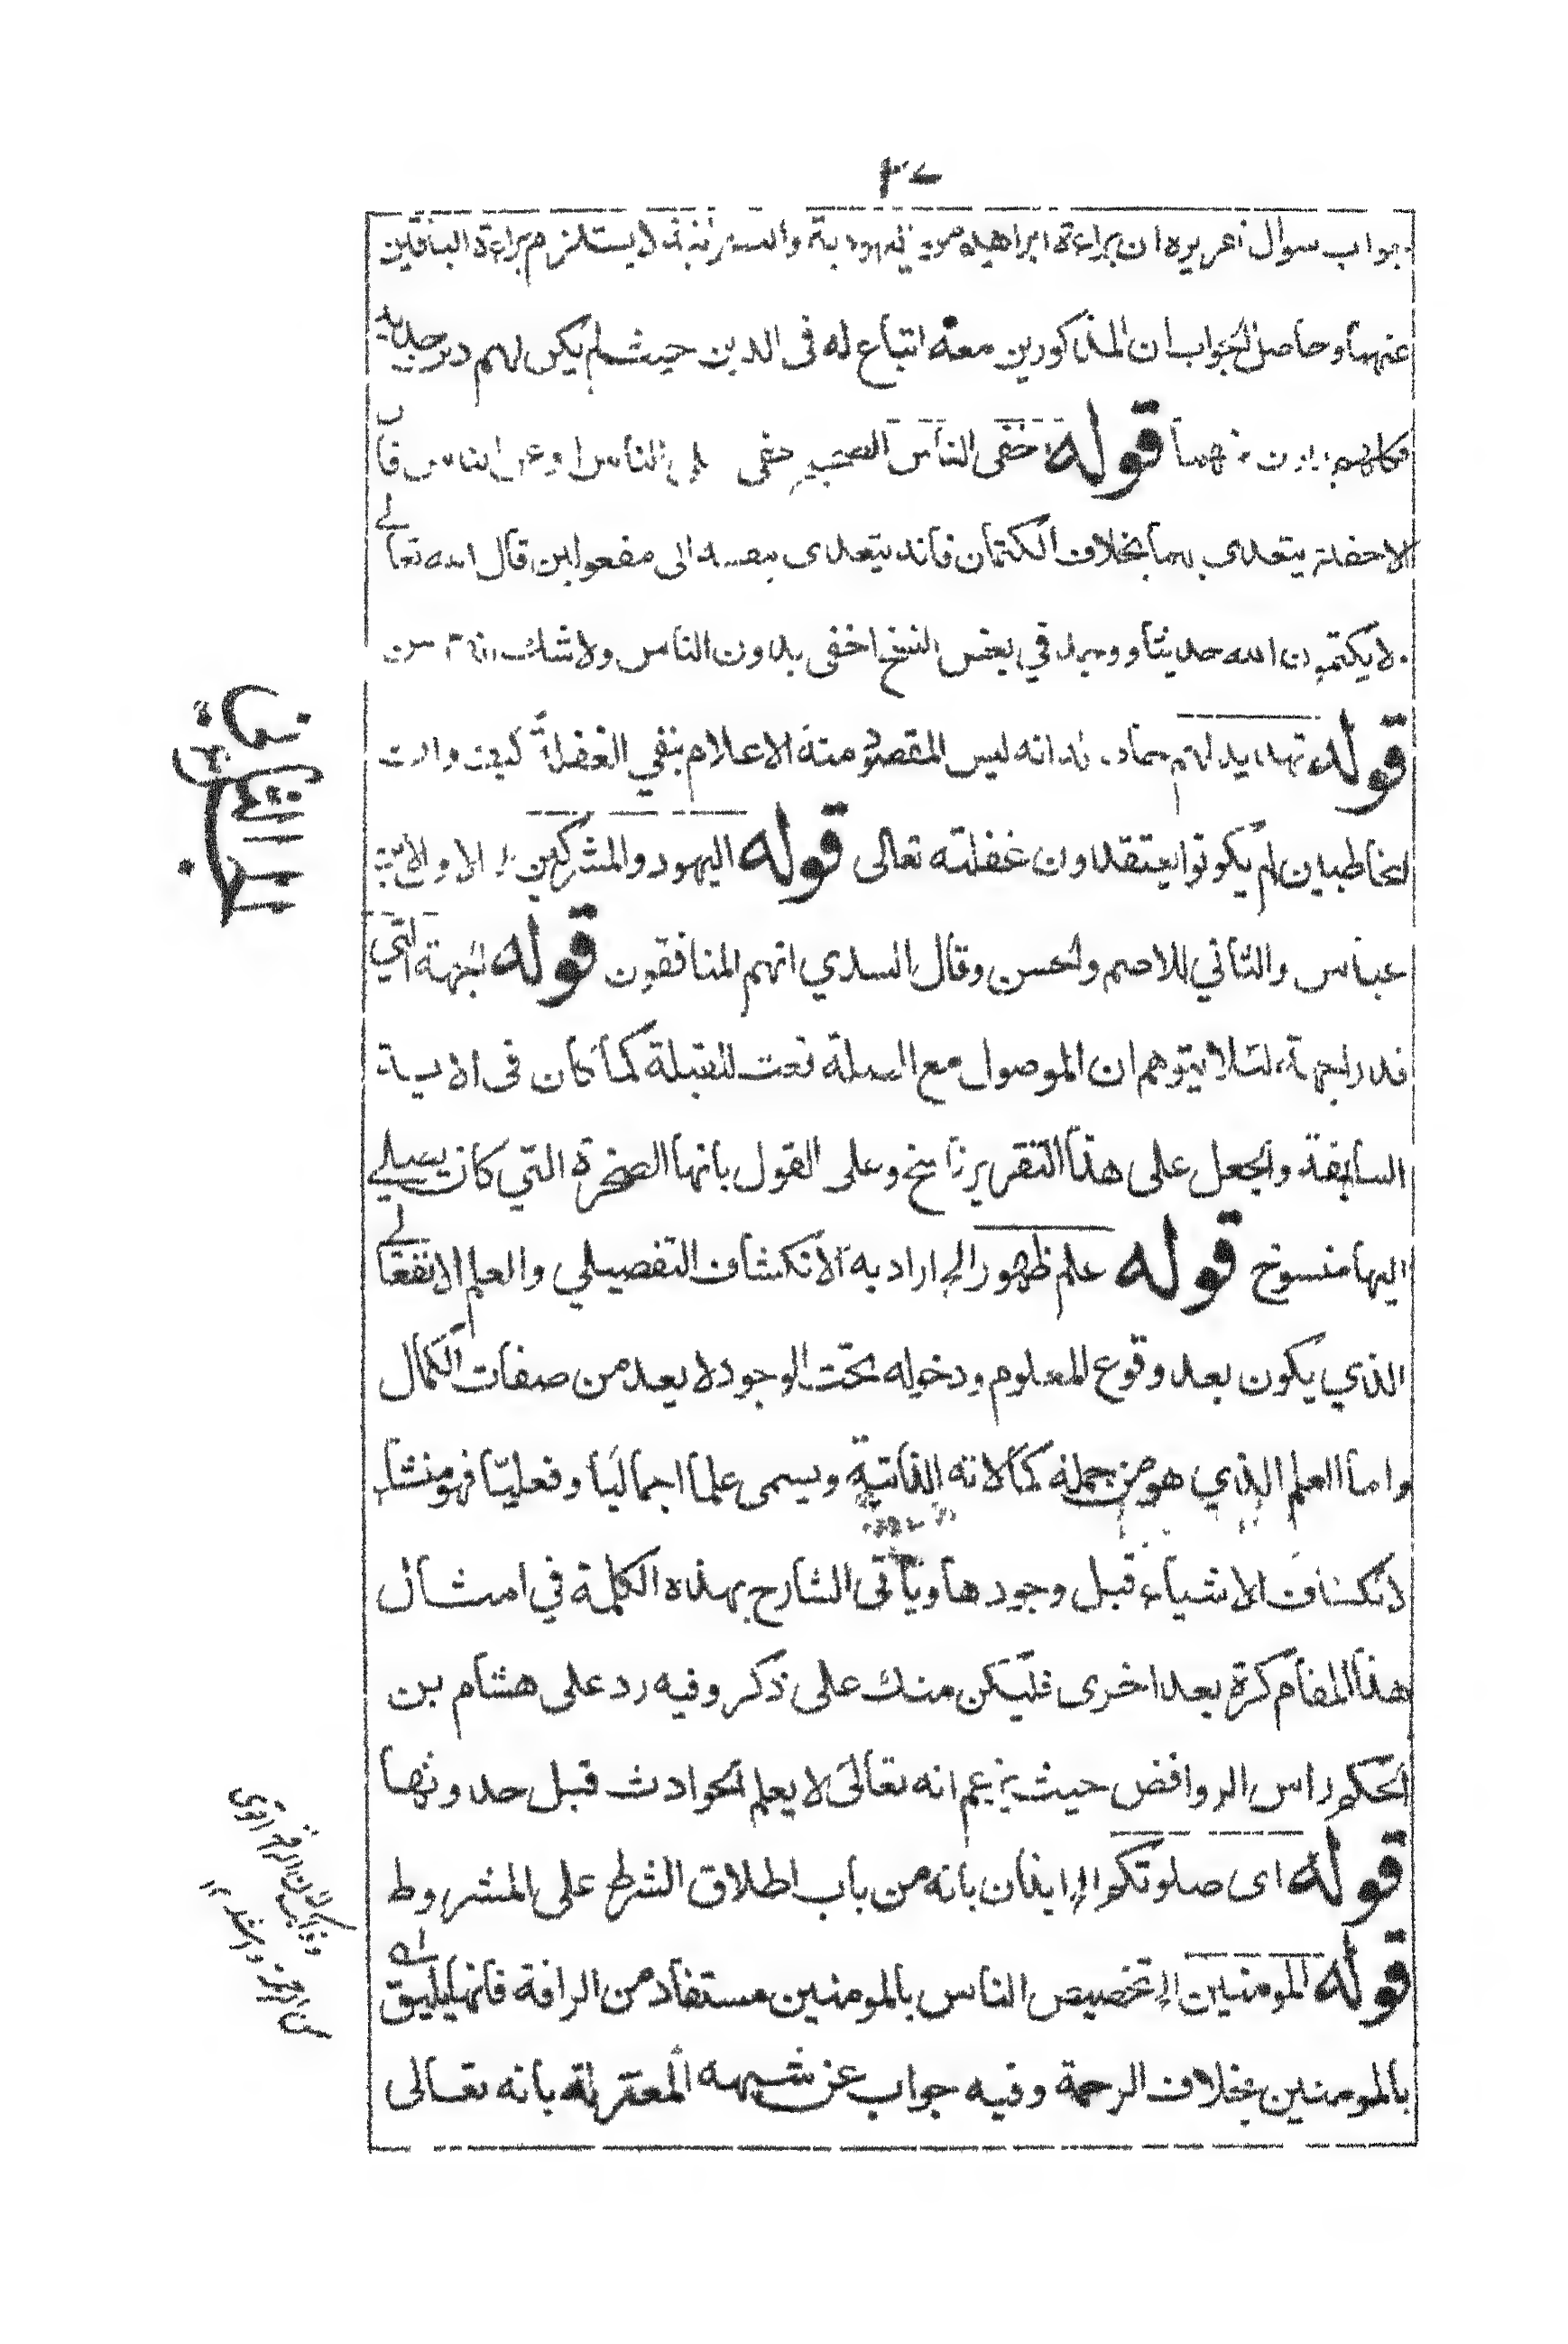 ٣٧
جواب سوال تحريره ان براءة ابراهيم من اليهودية والنصرانية لا يستلزم براءة الباقين
عنهما وحاصل الجواب ان المذكورين معه اتباع له فى الدين حيث لم يكن لهم دين جديد
فكلهم بريئون منهما قوله اخفى الناس الصحيح اخفى على الناس او عن الناس فان
الاخفاء يتعدى بهما بخلاف الكتمان فانه يتعدى بنفسه الى مفعولين قال الله تعالى
لا يكتمون الله حديثا ووجد في بعض النسخ اخفى بدون الناس ولا شك
قوله تهديد لهم ليس المقصود منه الاعلام بنفي الغفلة كيف و
المخاطبين لم يكونوا يعتقدون غفلته تعالى قوله اليهود والمشركين الاول لابن
عباس والثاني للاصم والحسن وقال السدي انهم المنافقون قوله الجهة التي
قدر الجهة لئلا يتوهم ان الموصول مع الصلة نعت للقبلة كما كان فى الاية
السابقة والجعل على هذا التقرير ناسخ وعلى القول بانها الصخرة التي كان يصلي
اليها منسوخ قوله علم ظهور الخ اراد به الانكشاف التفصيلي والعلم الانفعالي
الذي يكون بعد وقوع المعلوم ودخوله تحت الوجود لا يعد من صفات الكمال
واما العلم الذي هو من جملة كمالاته الذاتية ويسمى علما اجماليا وفعليا فهو منشأ
لانكشاف الاشياء قبل وجودها ويأتى الشارح بهذه الكلمة في امثال
هذا المقام كرة بعد اخرى فليكن منك على ذكر وفيه رد على هشام بن
الحكم راس الروافض حيث يزعم انه تعالى لا يعلم الحوادث قبل حدوثها
قوله اى صلوتكم الخ ايذان بانه من باب اطلاق الشرط على المشروط
قوله المومنين الخ تخصيص الناس بالمومنين مستفاد من الرافة فانها يليق
بالمومنين بخلاف الرحمة وفيه جواب عن شبهه المعتزلة بانه تعالى